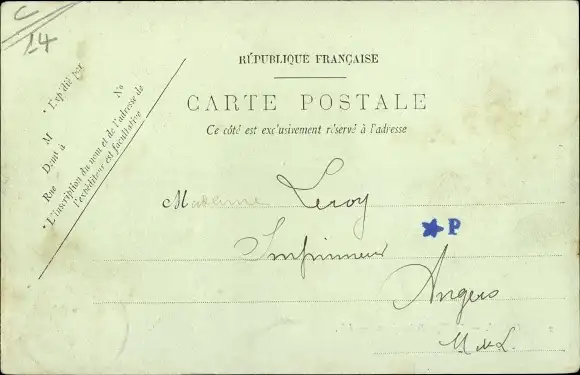 C
14
RÉPUBLIQUE FRANÇAISE
CARTE POSTALE
Ce côté est exclusivement réservé à l'adresse
* Expédié par
M
Demt à
Rue
No
* L'inscription du nom et de l'adresse de
l'expéditeur est facultative
Madame Leroy
P
Imprimeur
Angers
M &L.